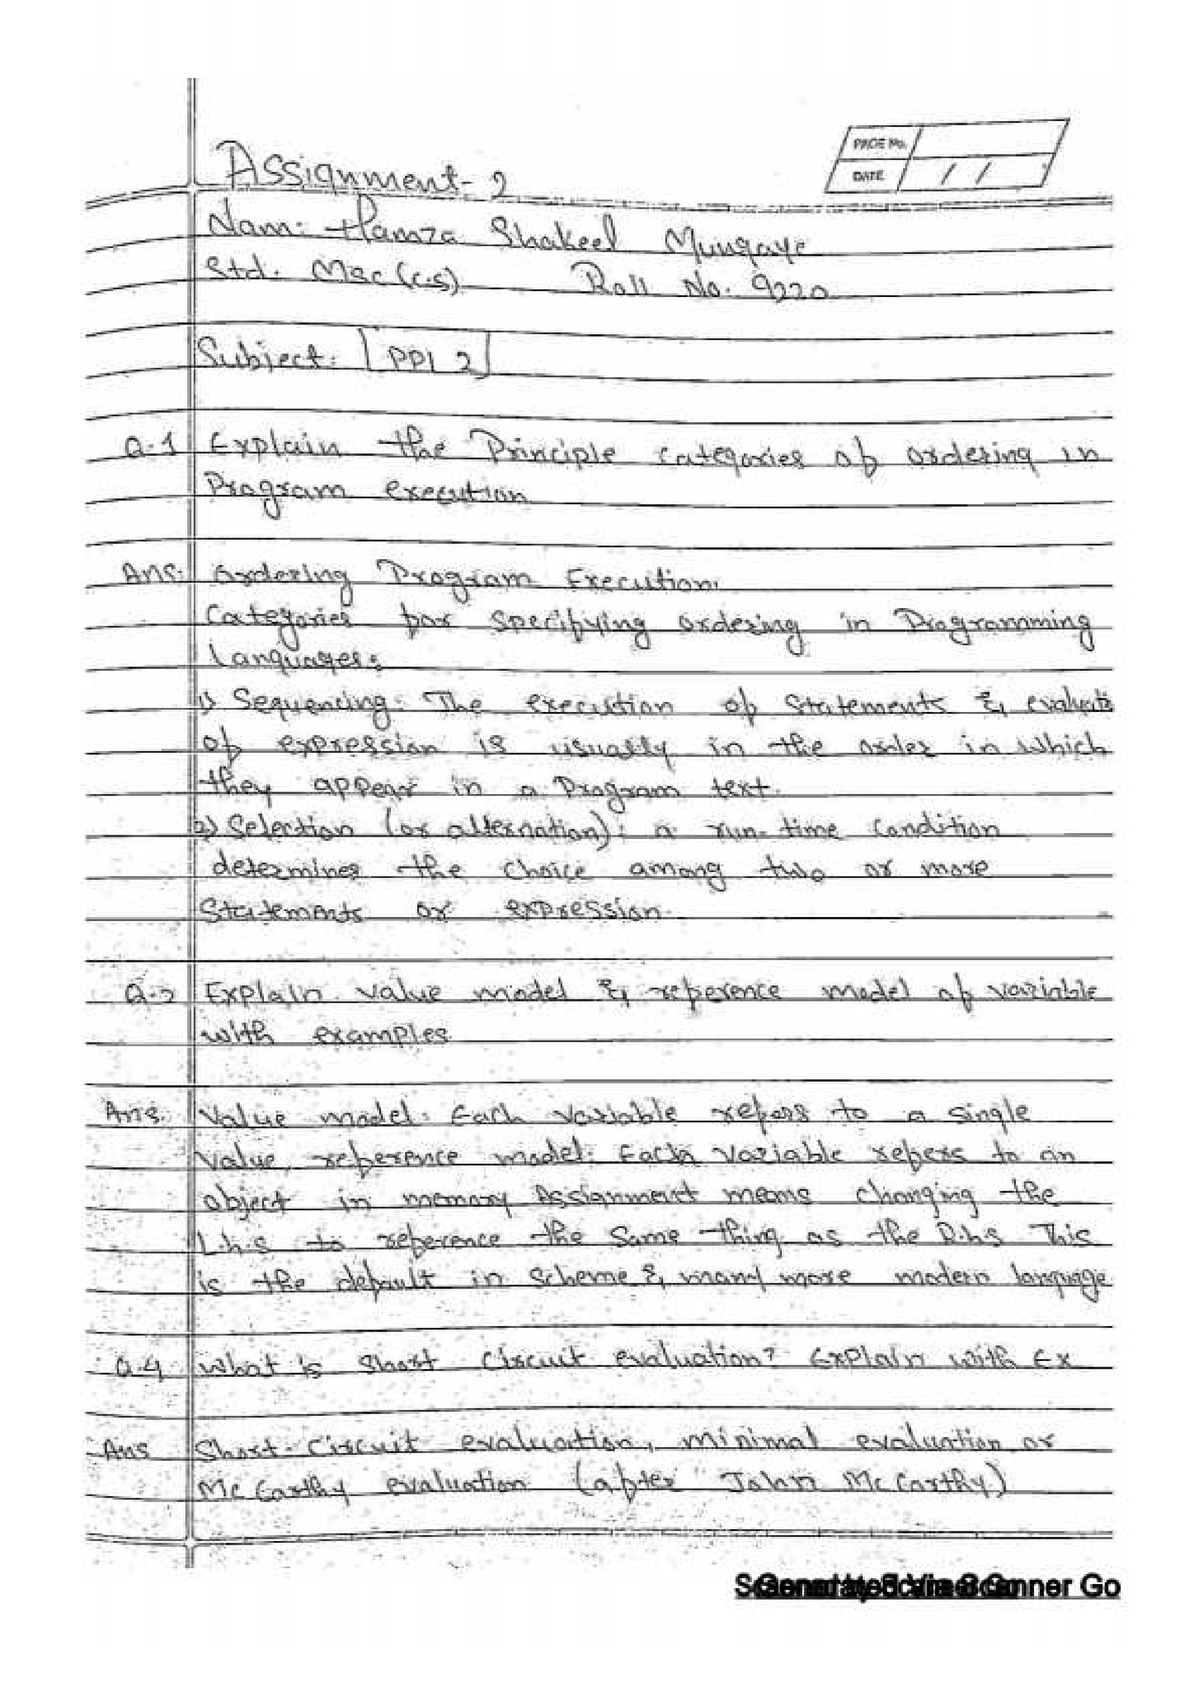 PAGE No.
DATE / /
Assignment- 2
Nam: Hamza Shakeel Mungaye
Std. Msc (C.S) Roll No. 9220
Subject: PPL 2
Q.1 Explain the Principle categories of ordering in
Program execution
Ans: Ordering Program Execution.
Categories for specifying ordering in Programming
languages:
1) Sequencing: The execution of statements & evaluate
of expression is usually in the order in which
they appear in a Program text.
2) Selection (or alternation): a run-time condition
determines the choice among two or more
Statements or expression.
Q.2 Explain value model & reference model of variable
with examples.
Ans. Value model: Each variable refers to a single
value, reference model: Each variable refers to an
object in memory Assignment means changing the
L.h.s to reference the same thing as the R.h.s This
is the default in scheme & many more modern language
Q.4 What is short circuit evaluation? Explain with Ex
Ans Short-Circuit evaluation, minimal evaluation or
McCarthy evaluation (after John McCarthy)
Scanner Go